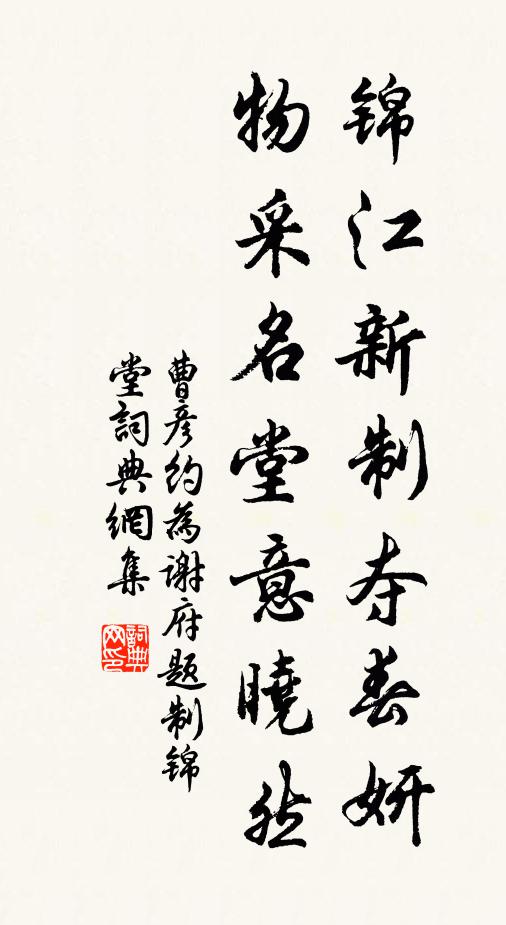 锦江新制夺春妍
物采名堂意曉然
曹彦约為谢府题制锦
堂詞典網集
詞典网印